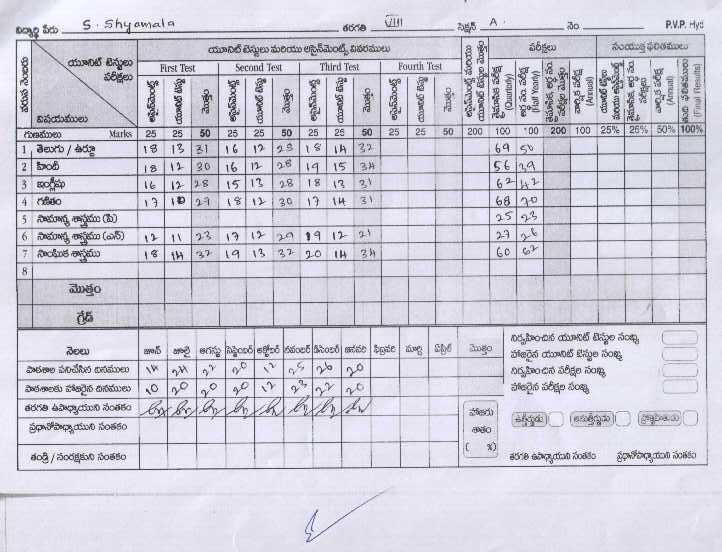 విద్యార్థి పేరు S. Shyamala తరగతి VIII సెక్షన్ A. నెం. P.V.P. Hyd
వరుస నెంబరు యూనిట్ టెస్టులు పరీక్షలు విషయములు యూనిట్ టెస్టులు మరియు అసైన్‌మెంట్స్ వివరములు పరీక్షలు సంయుక్త ఫలితములు
First Test Second Test Third Test Fourth Test
అసైన్‌మెంట్స్ యూనిట్ టెస్టు మొత్తం అసైన్‌మెంట్స్ యూనిట్ టెస్టు మొత్తం అసైన్‌మెంట్స్ యూనిట్ టెస్టు మొత్తం అసైన్‌మెంట్స్ యూనిట్ టెస్టు మొత్తం (Quarterly) (Half Yearly) (Annual) (Annual) (Final Results)
గుణములు Marks 25 25 50 25 25 50 25 25 50 25 25 50 200 100 100 200 100 25% 25% 50% 100%
1 తెలుగు / ఉర్దూ 18 13 31 16 12 28 18 14 32 69 50
2 హిందీ 18 12 30 16 12 28 19 15 34 56 39
3 ఇంగ్లీషు 16 12 28 15 13 28 18 13 31 62 42
4 గణితం 17 29 18 12 30 17 14 31 68 70
5 సామాన్య శాస్త్రము (పి) 25 23
6 సామాన్య శాస్త్రము (ఎన్) 12 11 23 17 12 29 19 12 21 27 26
7 సాంఘిక శాస్త్రము 18 14 32 19 13 32 20 14 34 60 62
8
మొత్తం
గ్రేడ్
నెలలు జూన్ జూలై ఆగస్టు సెప్టెంబర్ అక్టోబర్ నవంబర్ డిసెంబర్ జనవరి ఫిబ్రవరి మార్చి ఏప్రిల్ మొత్తం
పాఠశాల పనిచేసిన దినములు 14 24 22 20 12 25 26 20
పాఠశాలకు హాజరైన దినములు 10 20 20 20 12 23 22 20
తరగతి ఉపాధ్యాయుని సంతకం
ప్రధానోపాధ్యాయుని సంతకం
తండ్రి / సంరక్షకుని సంతకం
హాజరు
శాతం
( %)
నిర్వహించిన యూనిట్ టెస్టుల సంఖ్య
హాజరైన యూనిట్ టెస్టుల సంఖ్య
నిర్వహించిన పరీక్షల సంఖ్య
హాజరైన పరీక్షల సంఖ్య
ఉత్తీర్ణుడు
తరగతి ఉపాధ్యాయుని సంతకం ప్రధానోపాధ్యాయుని సంతకం